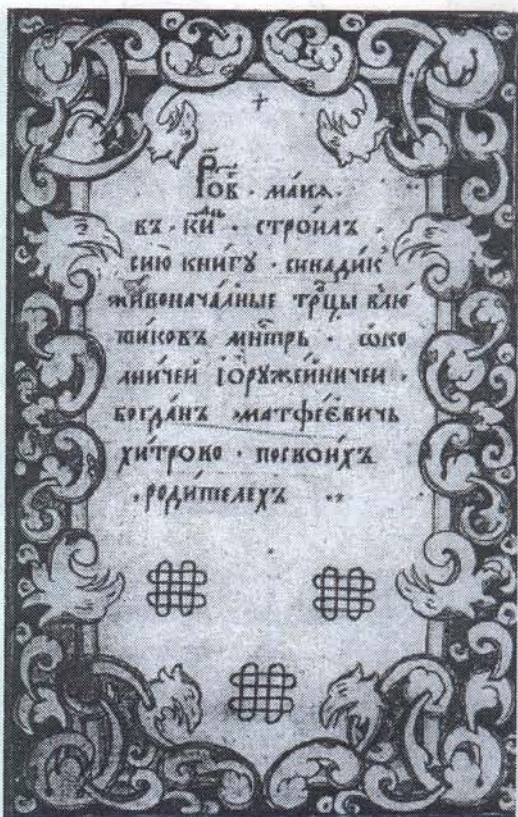 РОВ · маиѧ ·
въ · ки · строилъ ·
сию книгꙋ · синадик
живоначалные трцы влю
тиковъ мнтрь · ѡко
лничеи і орꙋжеиничеи ·
богданъ матфеевичь
хитрово · посвоихъ
родителехъ